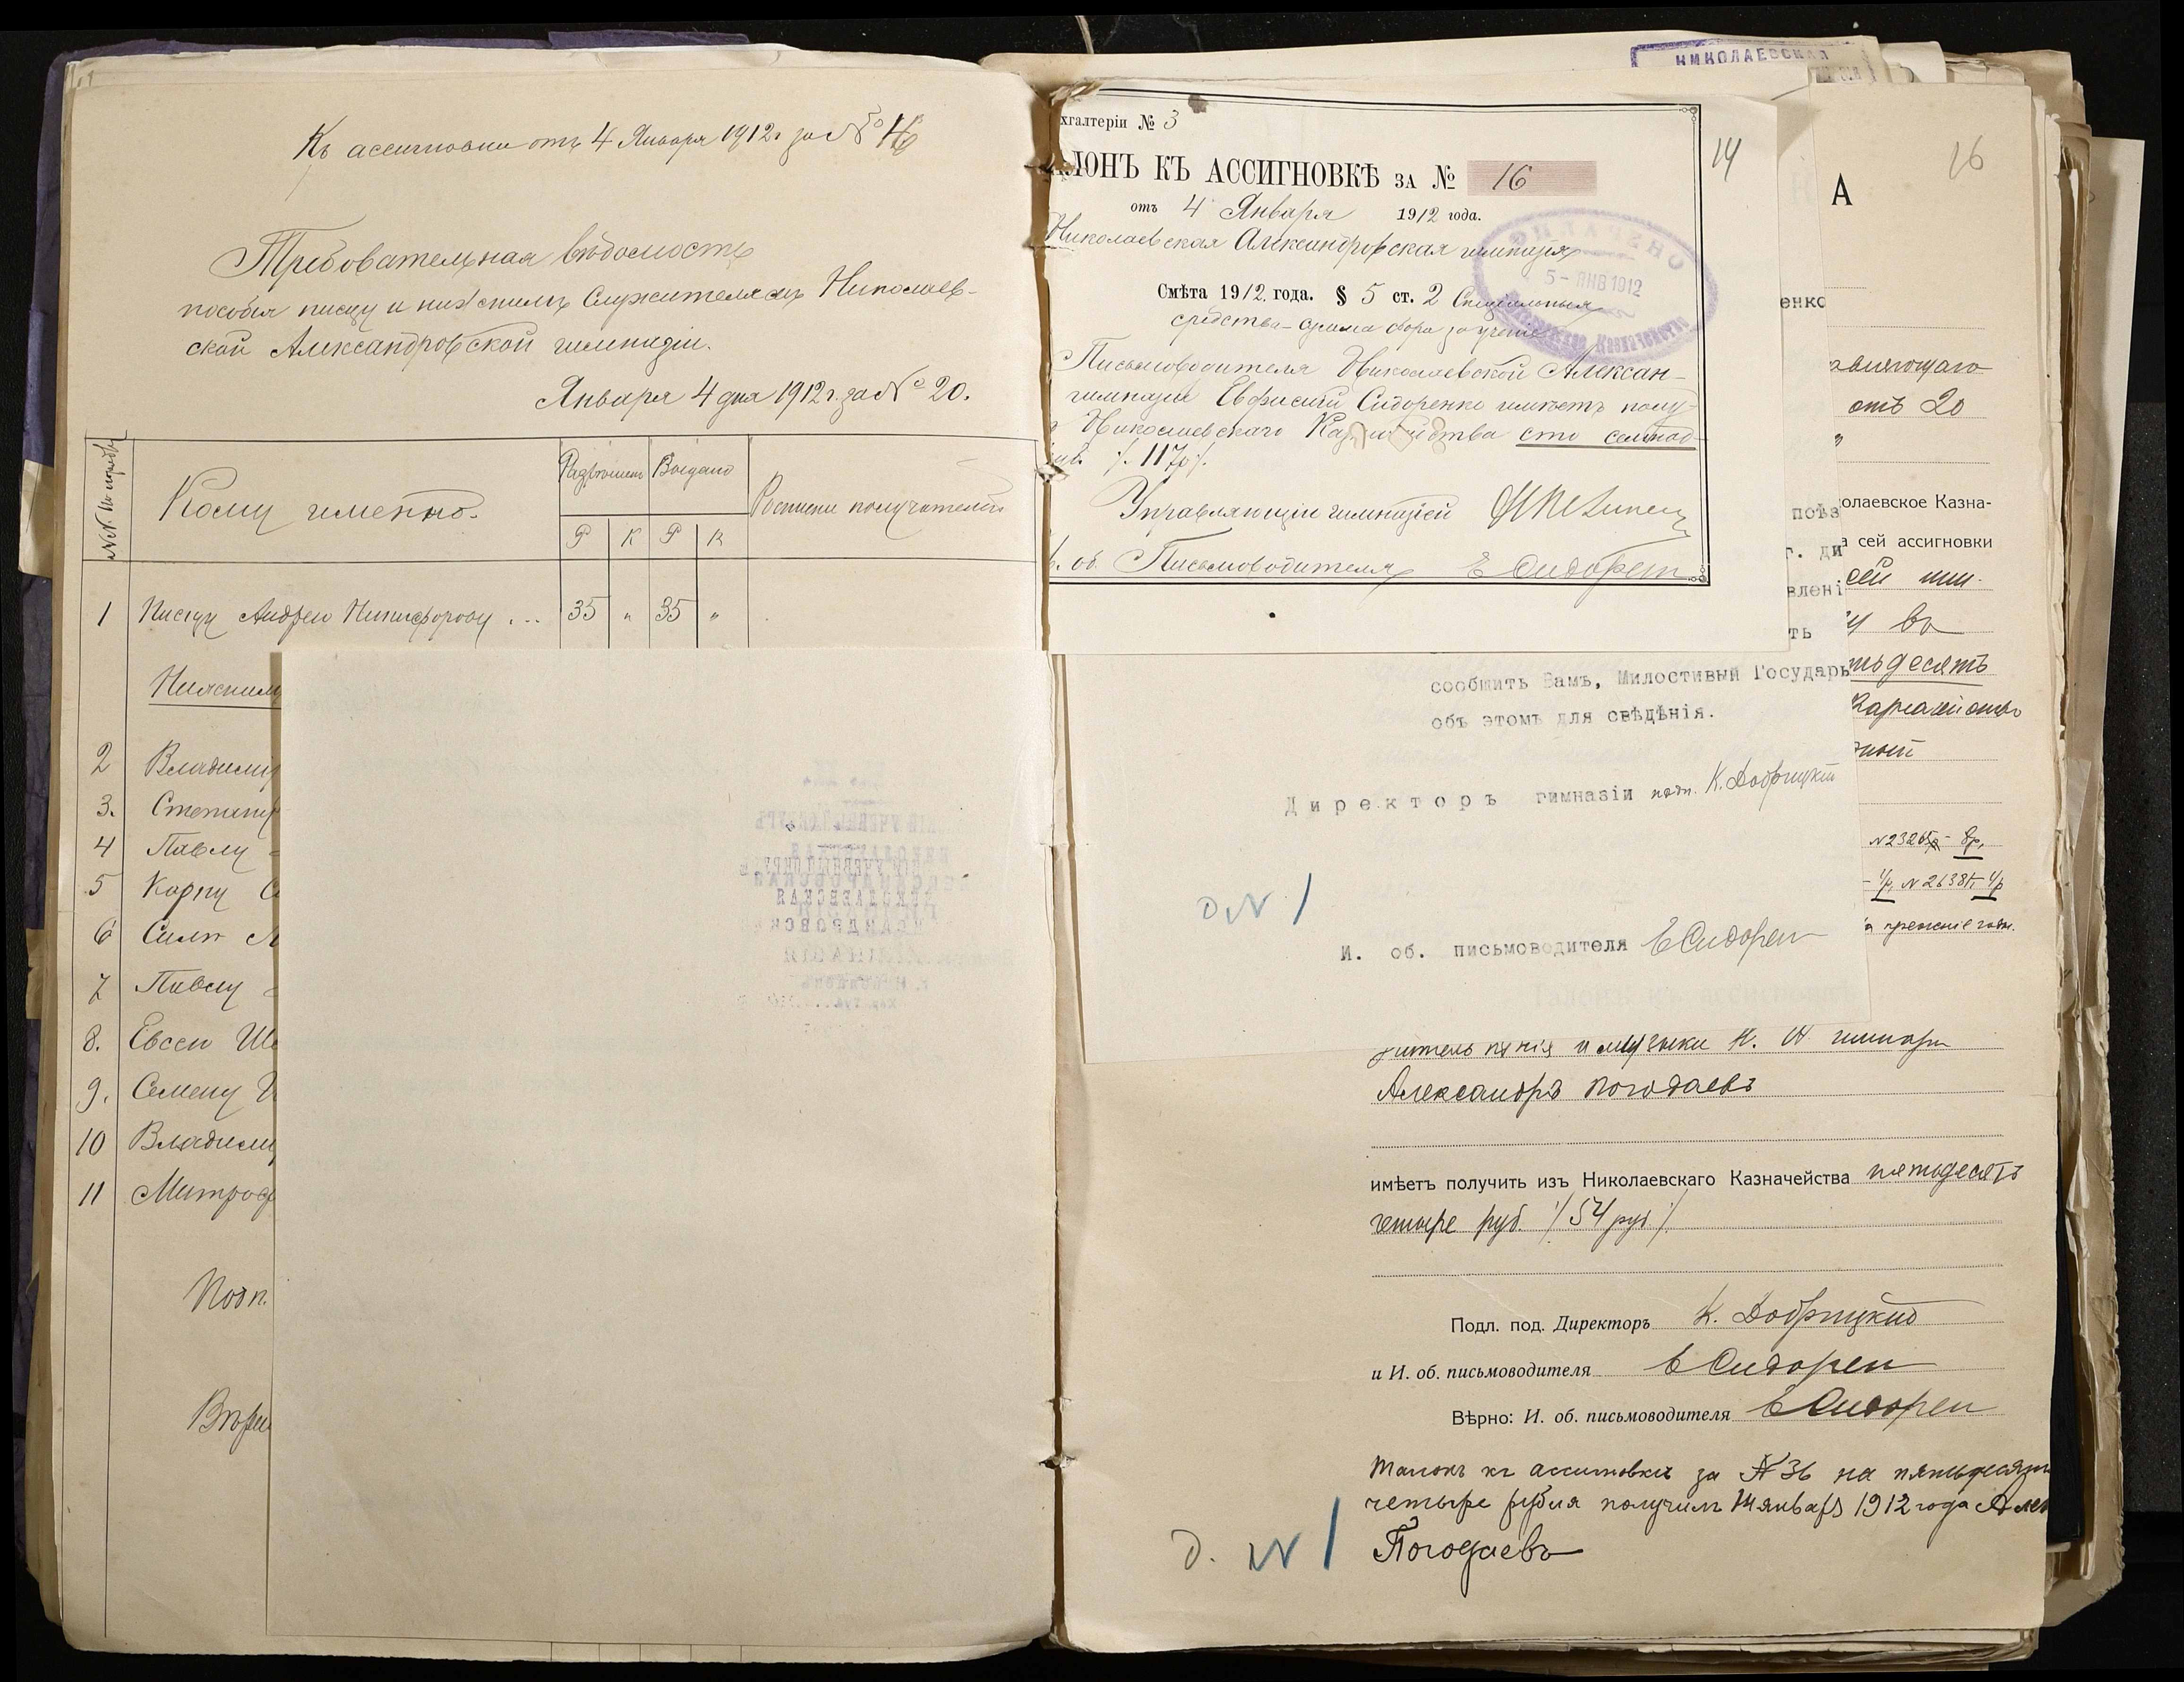 Къ ассигновки отъ 4 Января 1912 г за № 16
Требовательная вѣдомость
пособія писцу и низшимъ Служителямъ Николаев-
ской Александровской гимназіи.
Января 4 дня 1912 г. за № 20.
Кому именно.
Разрѣшено
Выдано
Росписки получателей
Р К Р К
1 Писцу Андрею Никифорову . .. 35 „ 35 „
Низшимъ
2 Владимір
3. Степану
4 Павлу
5 Карпу С
6 Силѣ
7 Павлу
8. Евсею Ше
9. Семену
10 Владимі
11 Митроф
Подп.
НИКОЛАЕВСКАЯ
хгалтеріи № 3
14
ЛОНЪ КЪ АССИГНОВКѢ ЗА № 16
отъ 4 Января 1912 года.
Николаевская Александровская гимназія
5 - ЯНВ 1912
Смѣта 1912 года. § 5 ст. 2 Спеціальныя
средства - сумма сбора за ученіе
Письмоводителя Николаевской Алексан-
гимназіи Евфисій Сидоренко имѣетъ полу-
Николаевскаго Казначейства сто семнад-
117 р.
Управляющій гимназіей
об. Письмоводителя Е Сидорен
16
А
енко
отъ 20
поѣз
олаевское Казна-
г. ди
а сей ассигновки
влені
ть
въ
тьдесятъ
сообщить Вамъ, Милостивый Государь
объ этомъ для свѣдѣнія.
Директоръ гимназіи подп. К. Добрицкій
Д № 1
И. об. письмоводителя Е Сидорен
прежніе годы.
учитель пѣнія и музыки Н. А гимназіи
Александръ Погодаевъ
имѣетъ получить изъ Николаевскаго Казначейства пятьдесятъ
четыре руб. /54 руб/
Подл. под. Директоръ К. Добрицкій
и И. об. письмоводителя Е Сидорен
Вѣрно: И. об. письмоводителя Е Сидорен
Талонъ къ ассигновкѣ за № 36 на пятьдесятъ
четыре рубля получилъ 14 января 1912 года Алек
Д. № 1
Погодаевъ